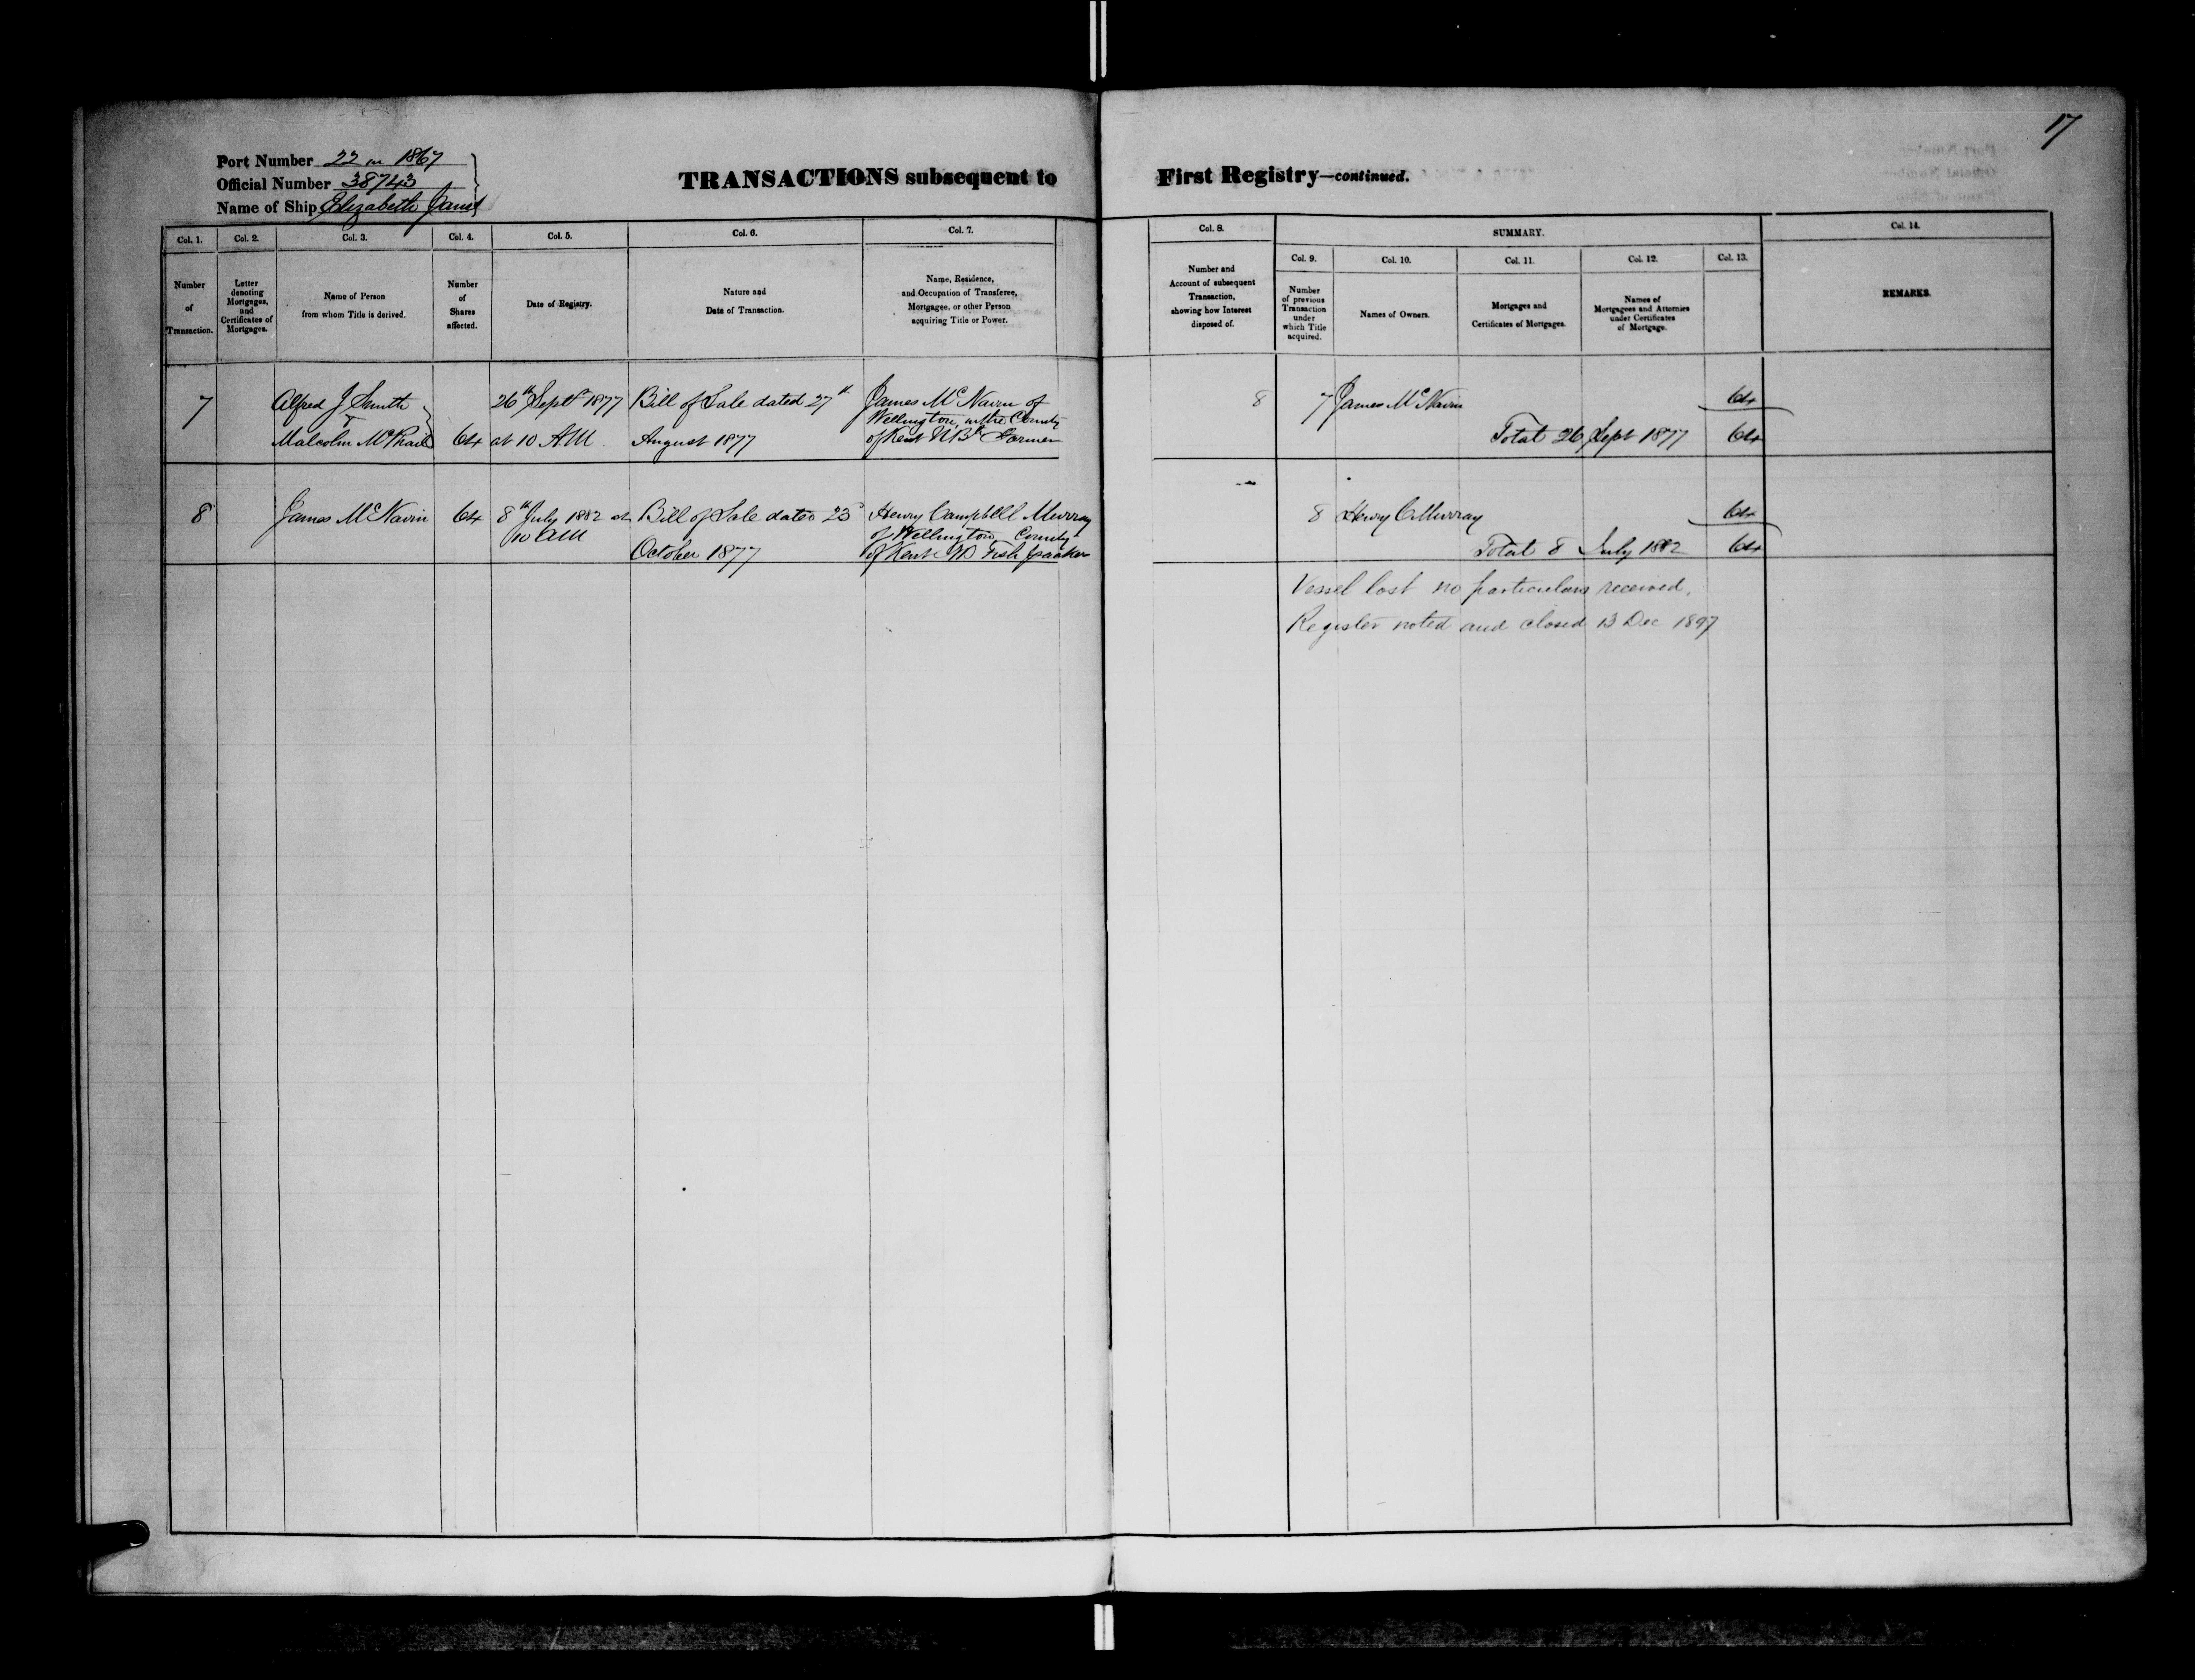 17
Port Number 22 in 1867
Official Number 38743
Name of Ship Elizabeth Janet
TRANSACTIONS subsequent to First Registry—continued.
Col. 1. Col. 2. Col. 3. Col. 4. Col. 5. Col. 6. Col. 7. Col. 8. SUMMARY. Col. 14.
Col. 9. Col. 10. Col. 11. Col. 12. Col. 13.
Number
of
Transaction.
Letter
denoting
Mortgages,
and
Certificates of
Mortgages.
Name of Person
from whom Title is derived.
Number
of
Shares
affected.
Date of Registry.
Nature and
Date of Transaction.
Name, Residence,
and Occupation of Transferee,
Mortgagee, or other Person
acquiring Title or Power.
Number and
Account of subsequent
Transaction,
showing how Interest
disposed of.
Number
of previous
Transaction
under
which Title
acquired.
Names of Owners.
Mortgages and
Certificates of Mortgages.
Names of
Mortgagees and Attornies
under Certificates
of Mortgage.
REMARKS.
7
Alfred J Smith
Malcolm McPhail
64
26th Sept 1877
at 10 AM
Bill of Sale dated 27th
August 1877
James McNairn of
Wellington, in the County
of Kent NBk Farmer
8
7 James McNairn 64
Total 26 Sept 1877 64
8
James McNairn
64
8th July 1882 at
10 AM
Bill of Sale dated 23
October 1877
Henry Campbell Murray
of Wellington County
of Kent NB Fish packer
8 Henry C Murray 64
Total 8 July 1882 64
Vessel lost no particulars received.
Register noted and closed 13 Dec 1897